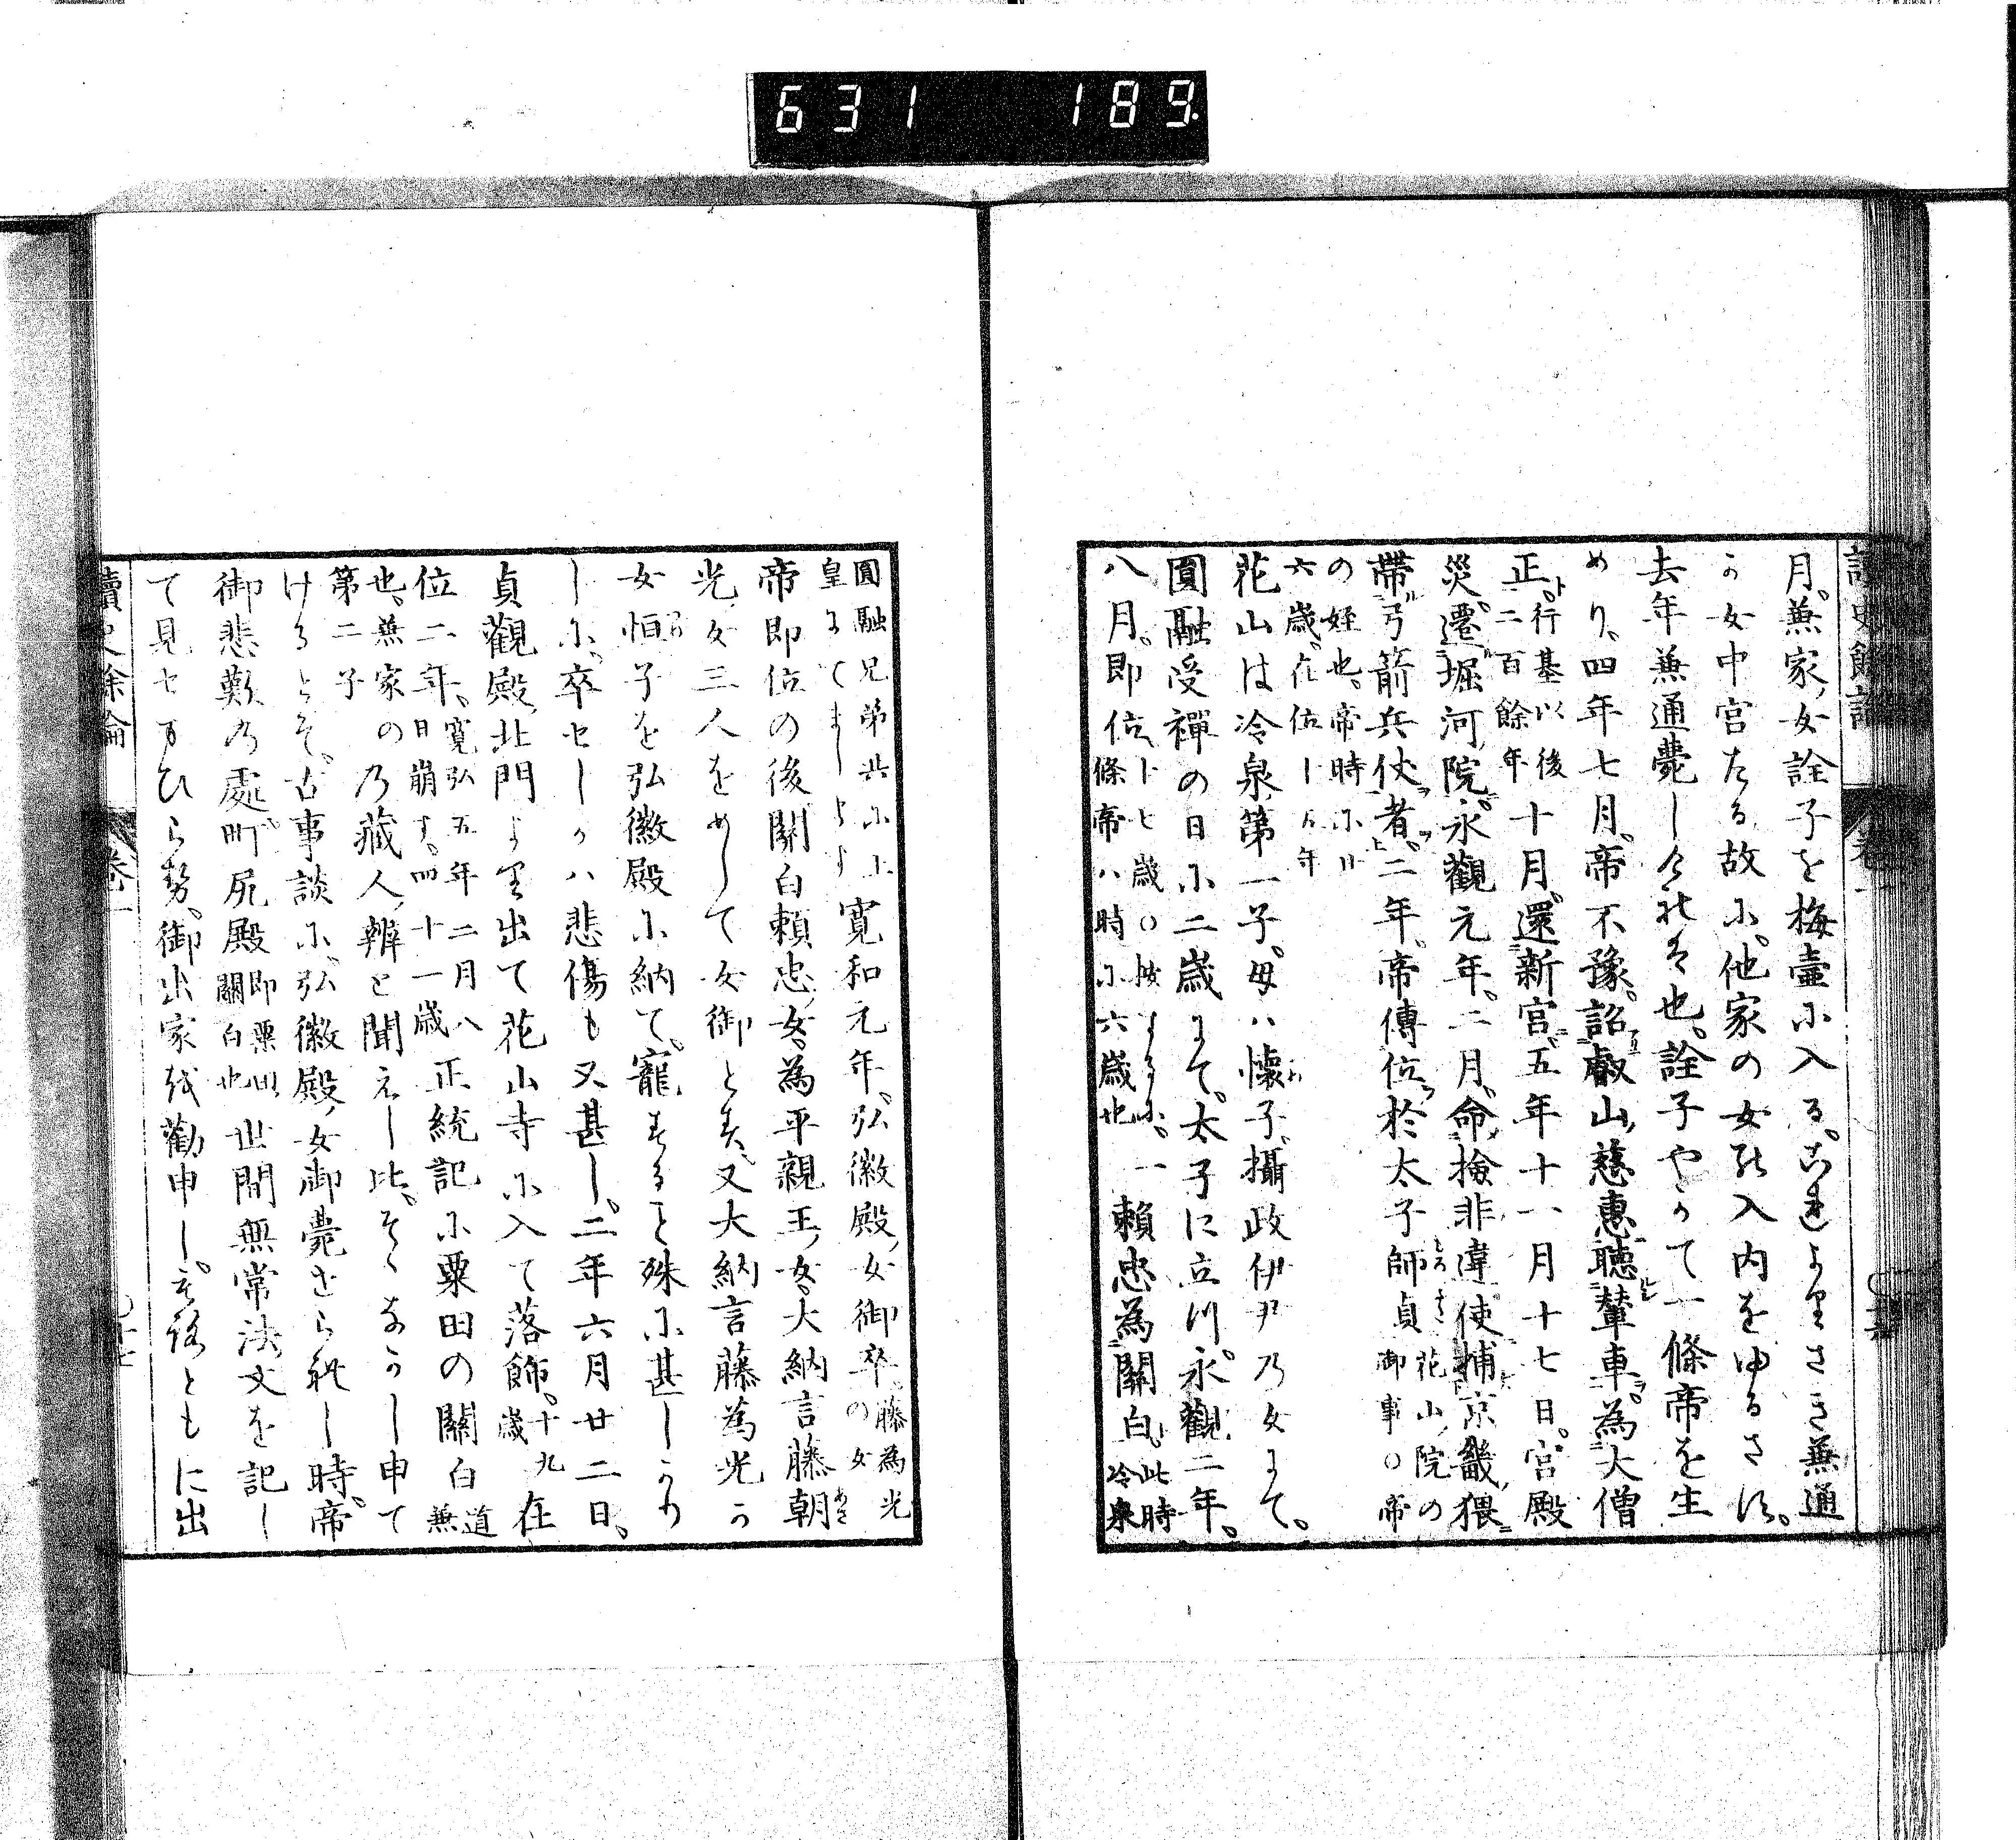 631 189
讀史餘論 卷一
月。兼家ノ女詮子を梅壷に入る。これよりさき兼通
か女中宮たる故に。他家の女の入内をゆるさす。
去年兼通薨しけれは也。詮子やかて一條帝を生
めり。四年七月。帝不豫。詔叡山ノ慈惠聴輦車。為大僧
正。行基以後二百餘年十月。還新宮。五年十一月十七日。宮殿
災。遷堀河院。永觀元年。二月。命検非違使捕京畿ノ猥
帶弓箭兵仗者。二年帝傳位於太子師貞花山ノ院の御事〇帝
の姪也。帝時に廿六歳。在位十五年
花山は冷泉ノ第一子。母ハ懷子。攝政伊尹乃女にて。
圓融受禪の日に二歳にて。太子に立川。永觀二年。
八月。即位十七歳〇按するに。一條帝ハ時に六歳也賴忠為關白。此時冷泉
圓融兄弟共に上皇にてましませり寛和元年。弘徽殿ノ女御卒。藤為光の女
帝即位の後關白賴忠ノ女。為平親王ノ女。大納言藤朝
光ノ女三人をめして女御とす。又大納言藤為光か
女恒子を弘徽殿に納て。寵すること殊に甚しかり
しに。卒せしかハ悲傷も又甚し。二年六月廿二日。
貞觀殿ノ北門より出て花山寺に入て落飾。十九歳在
位二年。寛弘五年二月八日崩す。四十一歳正統記に粟田の關白道兼
也。兼家の第二子乃藏人ノ辨と聞えし比。そゝなかし申て
けるとそ。古事談に。弘徽殿ノ女御薨せられし時。帝
御悲歎の處。町尻殿即粟田關白也世間無常ノ法文を記し
て見せ乃ひらせ。御出家を勸申し。もろともに出
讀史餘論 卷一